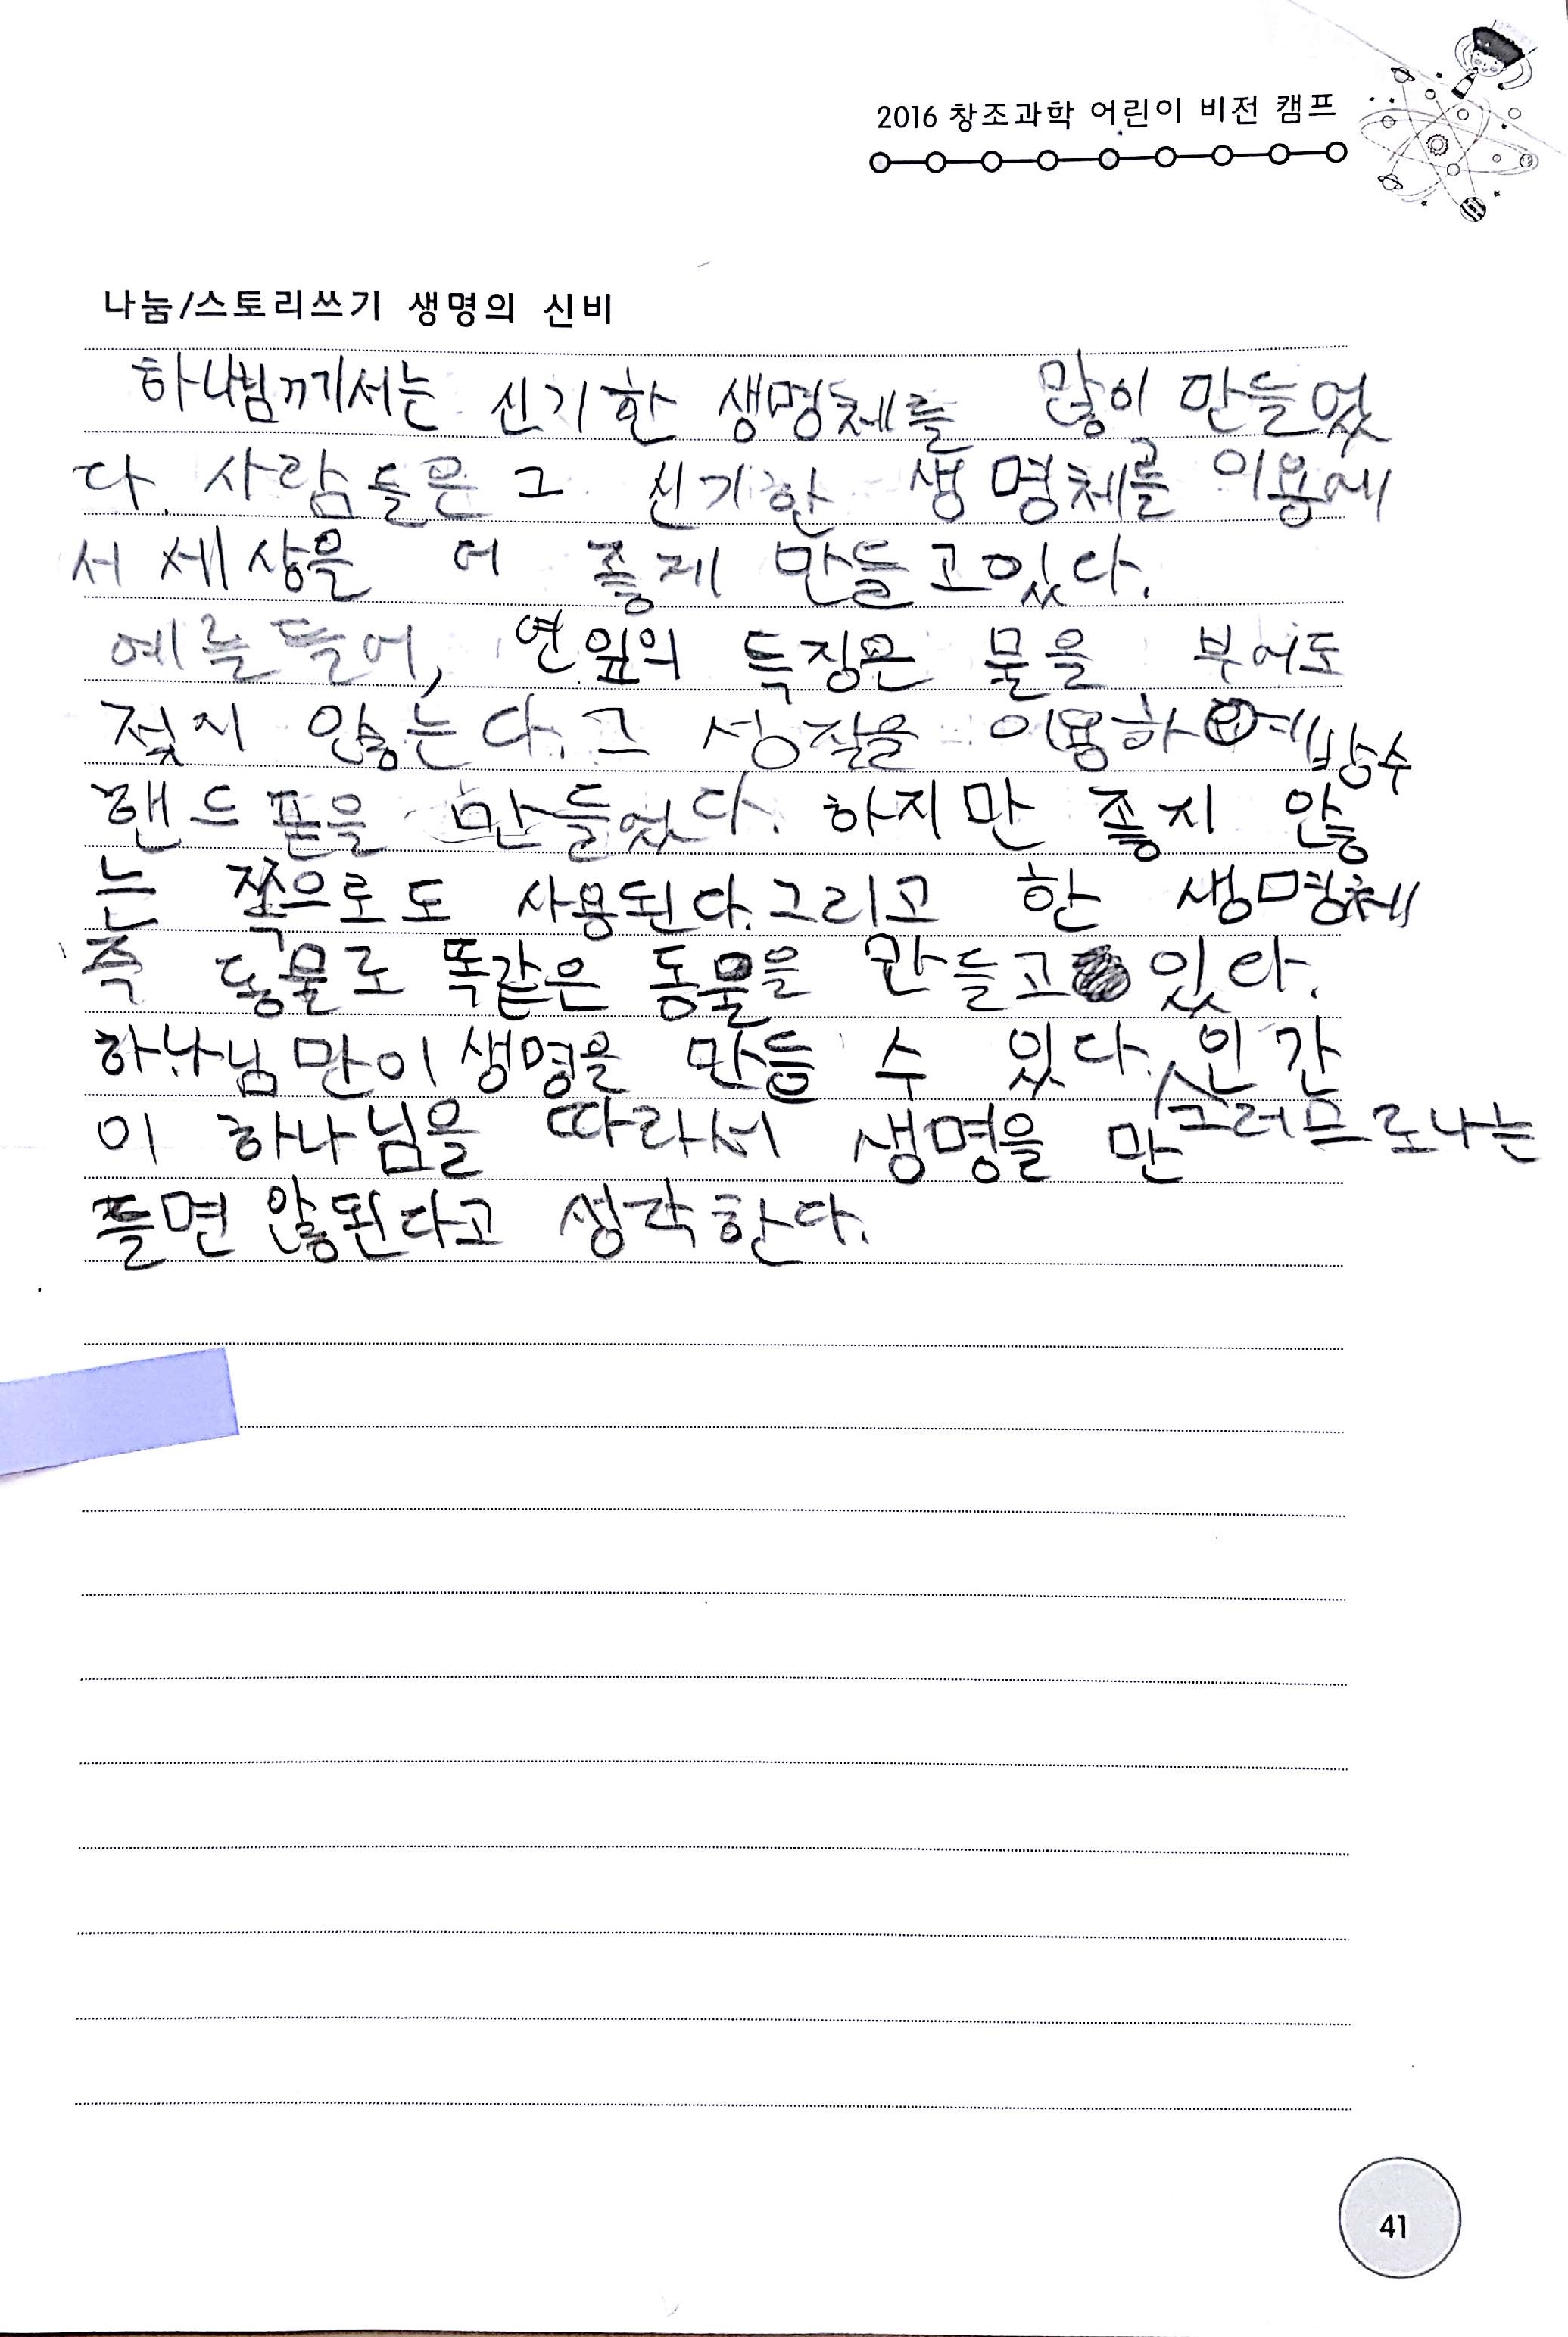 2016 창조과학 어린이 비전 캠프
나눔/스토리쓰기 생명의 신비
하나님께서는 신기한 생명체를 많이 만들었
다. 사람들은 그 신기한 생명체를 이용에
서 세상을 더 좋게 만들고있다.
예를들어, 연잎의 특징은 물을 부어도
젖지 않는다. 그 성질을 이용하여 방수
핸드폰을 만들었다. 하지만 좋지 않
는 쪽으로도 사용된다. 그리고 한 생명체
즉 동물로 똑같은 동물을 만들고 있다.
하나님만이 생명을 만들 수 있다. 그러므로나는 인간
이 하나님을 따라서 생명을 만
들면 않된다고 생각한다.
41